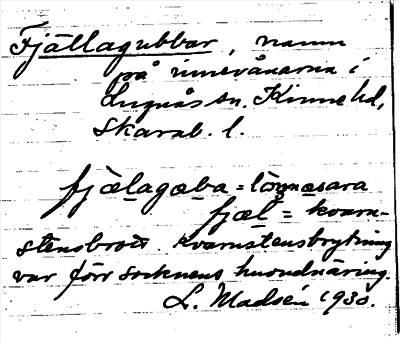 Fjällagubbar, namn
på innevånarna i
Lugnås sn. Kinne hd,
Skarab. l.
fjælagæba = lögnæsara
fjæl = kvarn-
stensbrott. Kvarnstensbrytning
var förr socknens huvudnäring.
L. Madsén 1930.